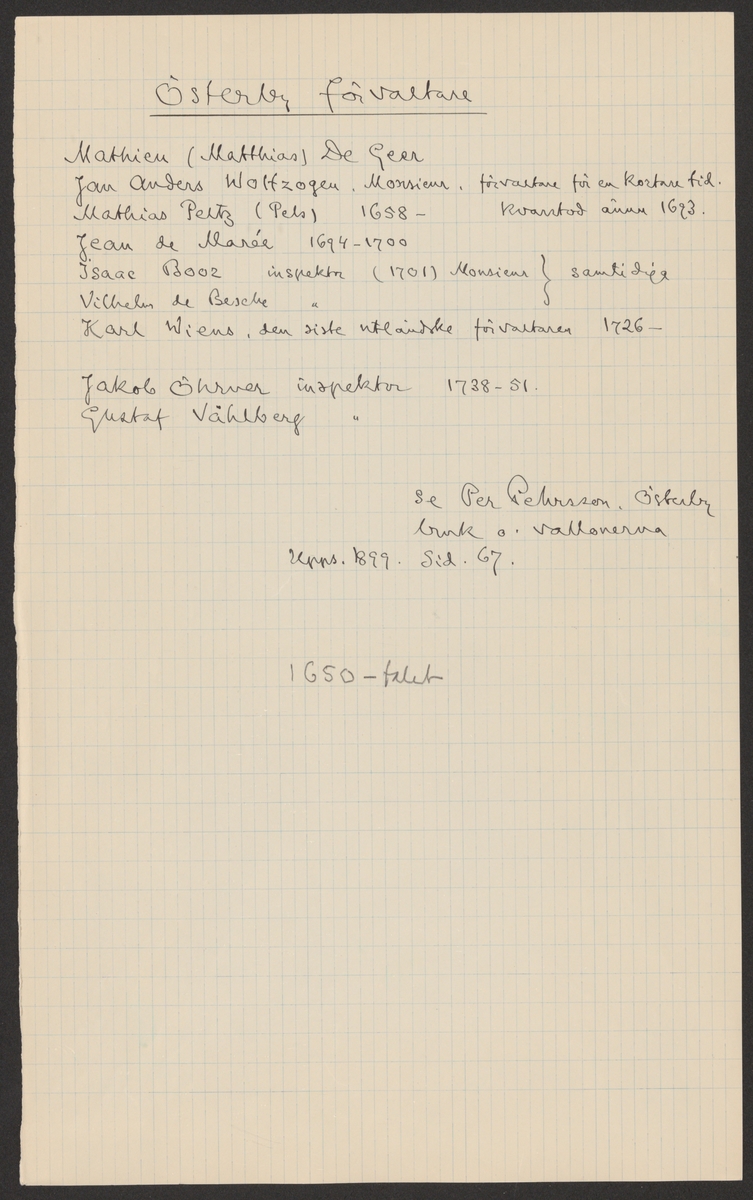 Österby förvaltare
Mathieu (Matthias) De Geer
Jan Anders Woltzogen, Monsieur, förvaltare för en kortare tid.
Mathias Peltz (Pels) 1658 - kvarstod ännu 1693.
Jean de Marée 1694-1700
Isaac Booz inspektor (1701) Monsieur } samtidiga
Vilhelm de Besche "
Karl Wiens, den siste utländske förvaltaren 1726-
Jakob Öhrner inspektor 1738-51.
Gustaf Våhlberg "
Se Per Pehrsson, Österby
bruk o. vallonerna
Upps. 1899. Sid. 67.
1650-talet